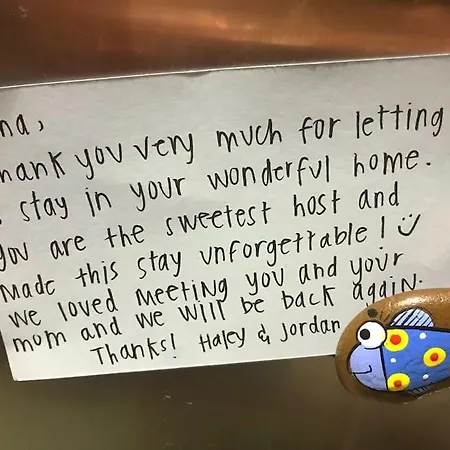 na,
hank you very much for letting
stay in your wonderful home.
you are the sweetest host and
made this stay unforgettable! :)
we loved meeting you and your
mom and we will be back again.
Thanks! Haley & Jordan